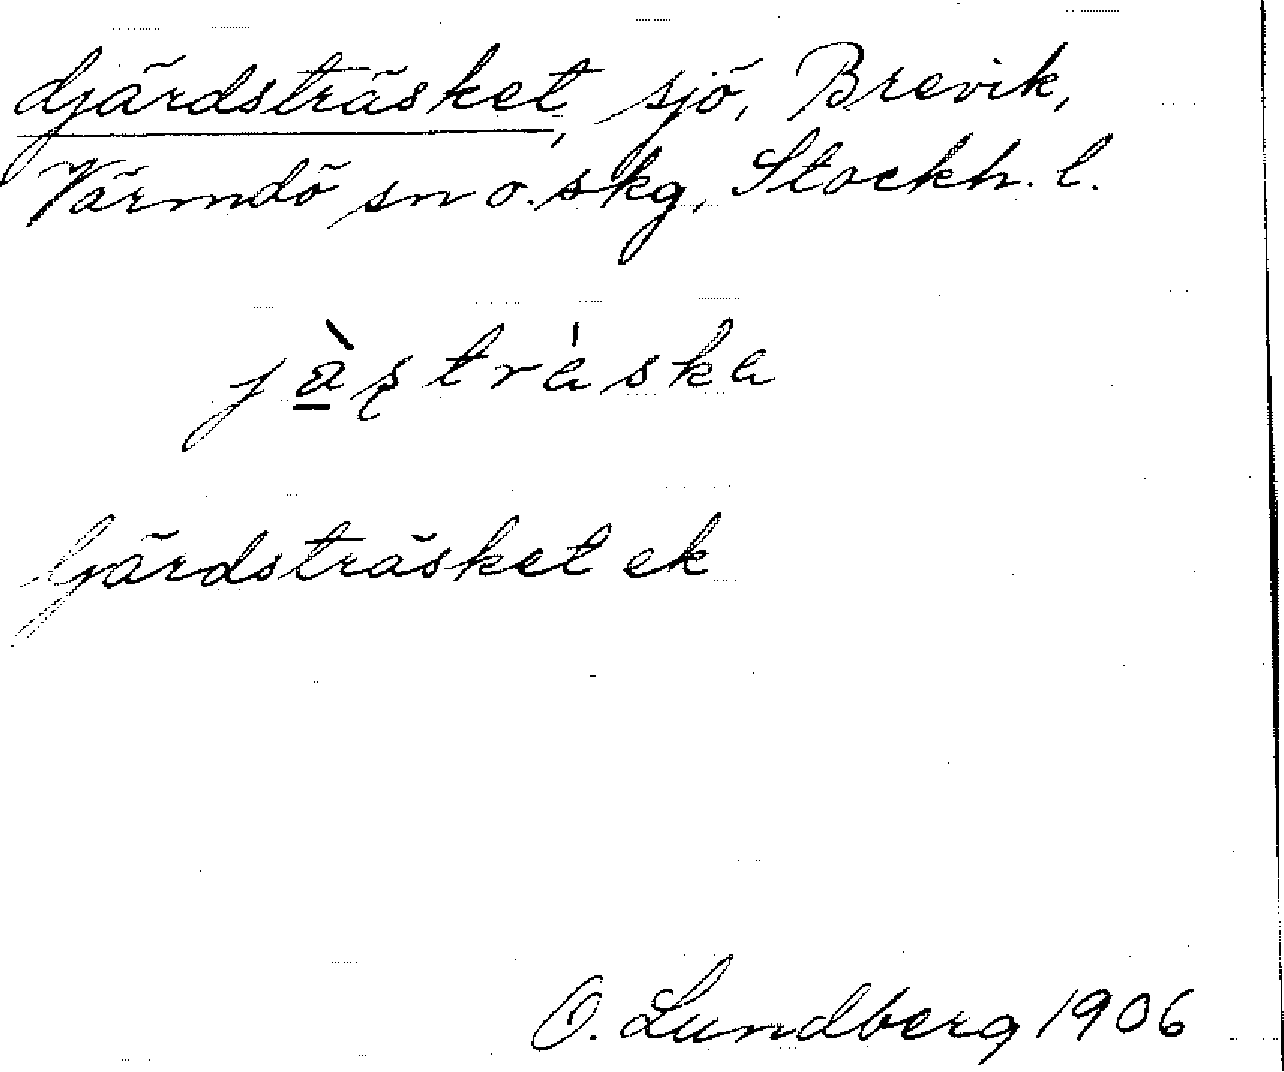 Gjärdsträsket, sjö, Brevik,
Värmdö sn o. skg, Stockh. l.
jàʂtráska
Gärdsträsket ek
O. Lundberg 1906